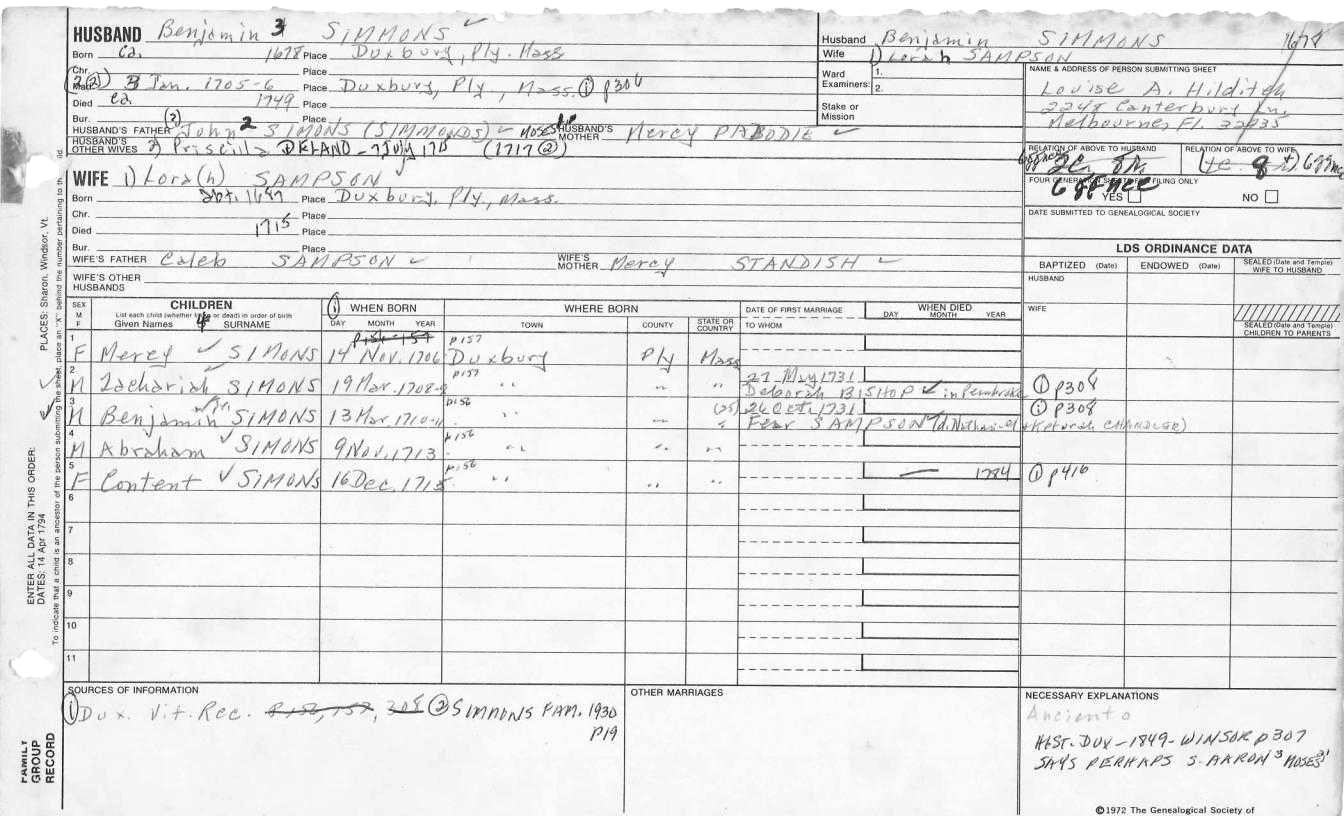 HUSBAND Benjamin 3 SIMMONS
Born Ca. 1678 Place Duxbury, Ply. Mass
Chr. Place
(2) 3 Jan. 1705-6 Place Duxbury, Ply, Mass. ① p308
Died Ca. 1749 Place
Bur. Place
HUSBAND'S FATHER (2) John 2 SIMONS (SIMMONDS) MOSES HUSBAND'S MOTHER Mercy PABODIE
HUSBAND'S OTHER WIVES 2) Priscilla DELANO - 7 July 1715 (1717 ②)
WIFE 1) Lora(h) SAMPSON
Born Place Duxbury, Ply., Mass.
Chr. Place
Died 1715 Place
Bur. Place
WIFE'S FATHER Caleb SAMPSON WIFE'S MOTHER Mercy STANDISH
WIFE'S OTHER HUSBANDS
Husband Benjamin SIMMONS 1678
Wife 1) Lorah SAMPSON
Ward Examiners: 1. 2.
Stake or Mission
NAME & ADDRESS OF PERSON SUBMITTING SHEET
Louise A. Hilditch
2248 Canterbury Ln,
Melbourne, Fl. 32935
RELATION OF ABOVE TO HUSBAND RELATION OF ABOVE TO WIFE
FOUR GENERATION SHEETS FOR FILING ONLY
YES NO
DATE SUBMITTED TO GENEALOGICAL SOCIETY
LDS ORDINANCE DATA
BAPTIZED (Date) ENDOWED (Date) SEALED (Date and Temple) WIFE TO HUSBAND
HUSBAND
WIFE
SEALED (Date and Temple) CHILDREN TO PARENTS
SEX M F
CHILDREN
List each child (whether living or dead) in order of birth
Given Names 4 SURNAME
① WHEN BORN DAY MONTH YEAR
WHERE BORN TOWN COUNTY STATE OR COUNTRY
DATE OF FIRST MARRIAGE TO WHOM
WHEN DIED DAY MONTH YEAR
1 F Mercy SIMONS 14 Nov. 1706 p157 Duxbury Ply Mass
2 M Zachariah SIMONS 19 Mar. 1708-9 p157 " " " 27 May 1731 ① p308
Deborah BISHOP in Pembroke
3 M Benjamin SIMONS 13 Mar. 1710-11 p156 " " " (25) 26 Oct. 1731 ① p308
Fear SAMPSON (d. Nathaniel + Keturah CHANDLER)
4 M Abraham SIMONS 9 Nov. 1713 p156 " " "
5 F Content SIMONS 16 Dec. 1715 p156 " " " — 1784 ① p416
6
7
8
9
10
11
SOURCES OF INFORMATION
① Dux. Vit. Rec. p156, 157, 308 ② SIMMONS FAM. 1930
p19
OTHER MARRIAGES
NECESSARY EXPLANATIONS
HIST. DUX - 1849 - WINSOR p307
SAYS PERHAPS S. AARON 3 MOSES
©1972 The Genealogical Society of
PLACES: Sharon, Windsor, Vt.
ENTER ALL DATA IN THIS ORDER:
DATES: 14 Apr 1794
To indicate that a child is an ancestor of the person submitting the sheet, place an "X" behind the number pertaining to
FAMILY GROUP RECORD